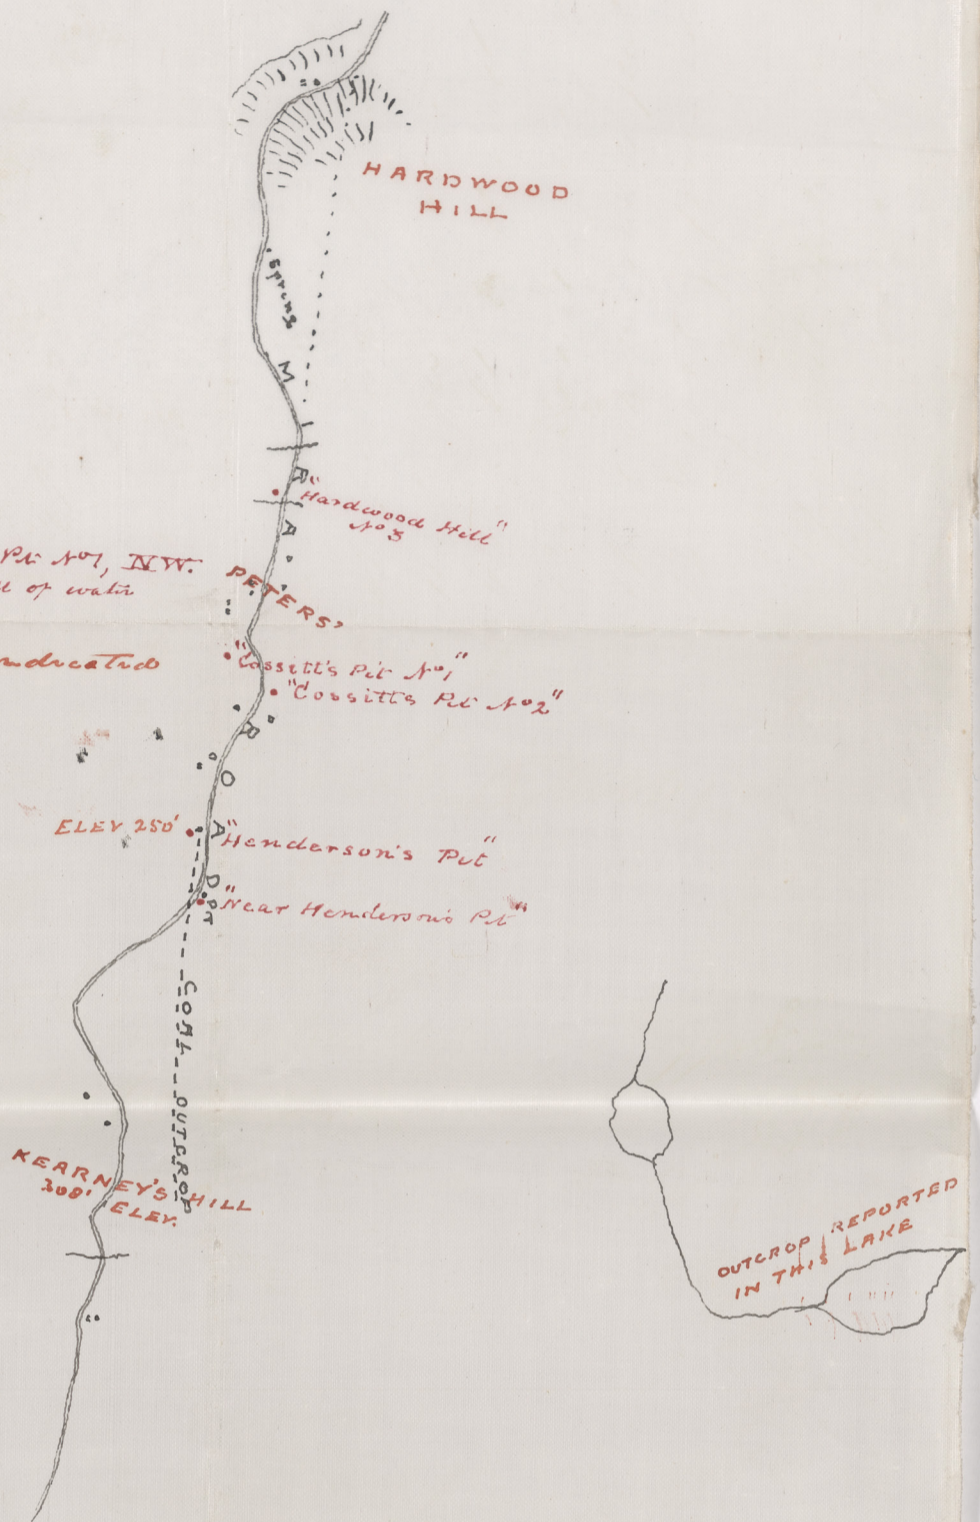 HARDWOOD
HILL
Spring
MIRA ROAD
"Hardwood Hill"
No 3
Pit No 1, NW.
of water
PETERS'
indicated
"Cossitt's Pit No 1"
"Cossitt's Pit No 2"
ELEV 250'
"Henderson's Pit"
"Near Henderson's Pit"
COAL OUTCROP
KEARNEY'S HILL
308' ELEV.
OUTCROP REPORTED
IN THIS LAKE